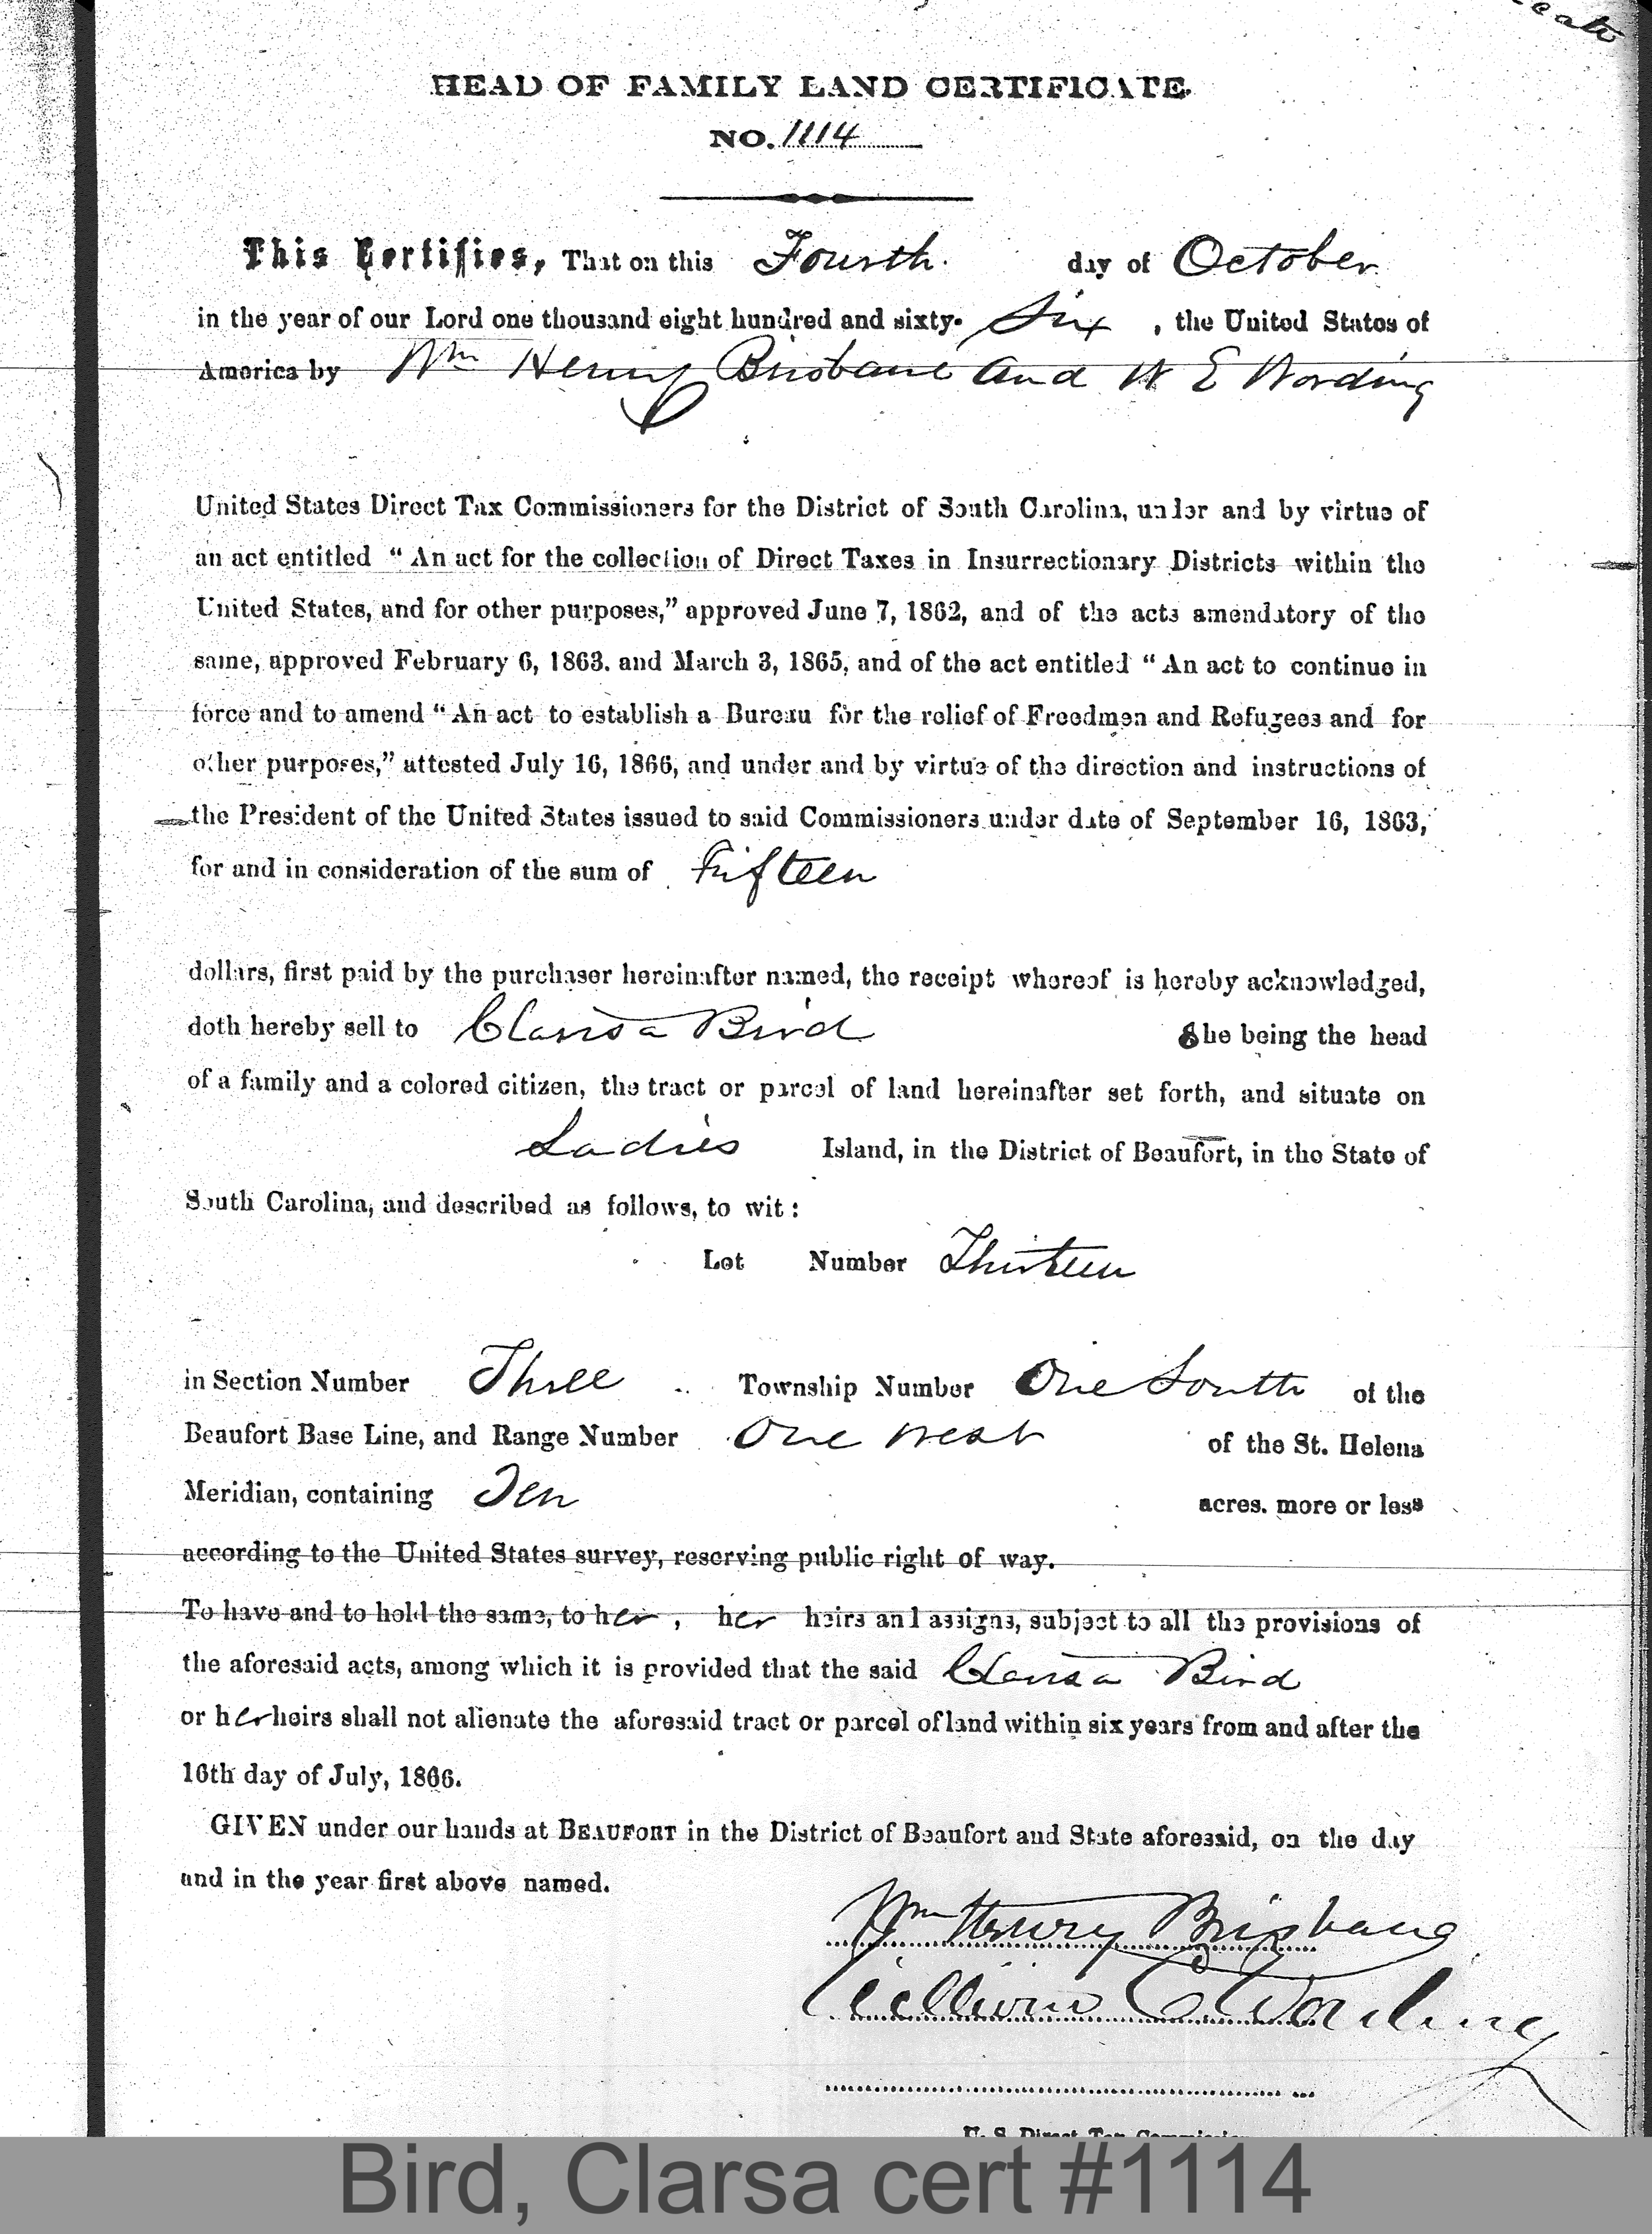 HEAD OF FAMILY LAND CERTIFICATE
NO. 1114
This Certifies, That on this Fourth day of October
in the year of our Lord one thousand eight hundred and sixty-Six, the United States of
America by Wm Henry Brisbane and W E Wording
United States Direct Tax Commissioners for the District of South Carolina, under and by virtue of
an act entitled "An act for the collection of Direct Taxes in Insurrectionary Districts within the
United States, and for other purposes," approved June 7, 1862, and of the acts amendatory of the
same, approved February 6, 1863. and March 3, 1865, and of the act entitled "An act to continue in
force and to amend "An act to establish a Bureau for the relief of Freedmen and Refugees and for
other purposes," attested July 16, 1866, and under and by virtue of the direction and instructions of
the President of the United States issued to said Commissioners under date of September 16, 1863,
for and in consideration of the sum of Fifteen
dollars, first paid by the purchaser hereinafter named, the receipt whereof is hereby acknowledged,
doth hereby sell to Clarisa Bird She being the head
of a family and a colored citizen, the tract or parcel of land hereinafter set forth, and situate on
Ladies Island, in the District of Beaufort, in the State of
South Carolina, and described as follows, to wit:
Lot Number Thirteen
in Section Number Three Township Number One South of the
Beaufort Base Line, and Range Number One West of the St. Helena
Meridian, containing Ten acres. more or less
according to the United States survey, reserving public right of way.
To have and to hold the same, to her, her heirs and assigns, subject to all the provisions of
the aforesaid acts, among which it is provided that the said Clarisa Bird
or her heirs shall not alienate the aforesaid tract or parcel of land within six years from and after the
16th day of July, 1866.
GIVEN under our hands at BEAUFORT in the District of Beaufort and State aforesaid, on the day
and in the year first above named.
Wm Henry Brisbane
William E Wording
U. S. Direct Tax
Bird, Clarsa cert #1114